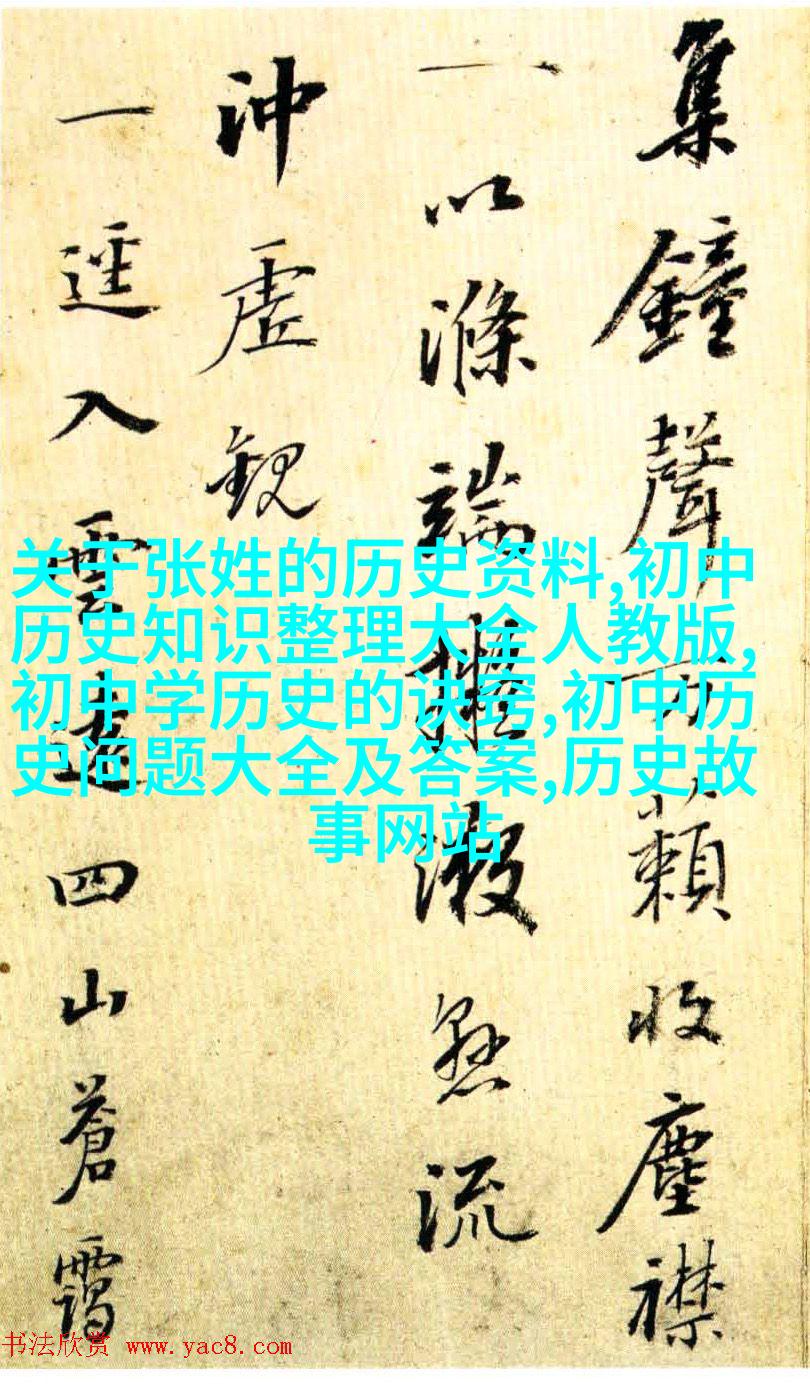 集鐘聲万籟收塵襟
一以滌端流
沖虛觀
一逕入雲遠四山蒼靄
关于张姓的历史资料,初中
历史知识整理大全人教版,
初中学历史的诀窍,初中历
史问题大全及答案,历史故
事网站
书法欣赏 www.yac8.com